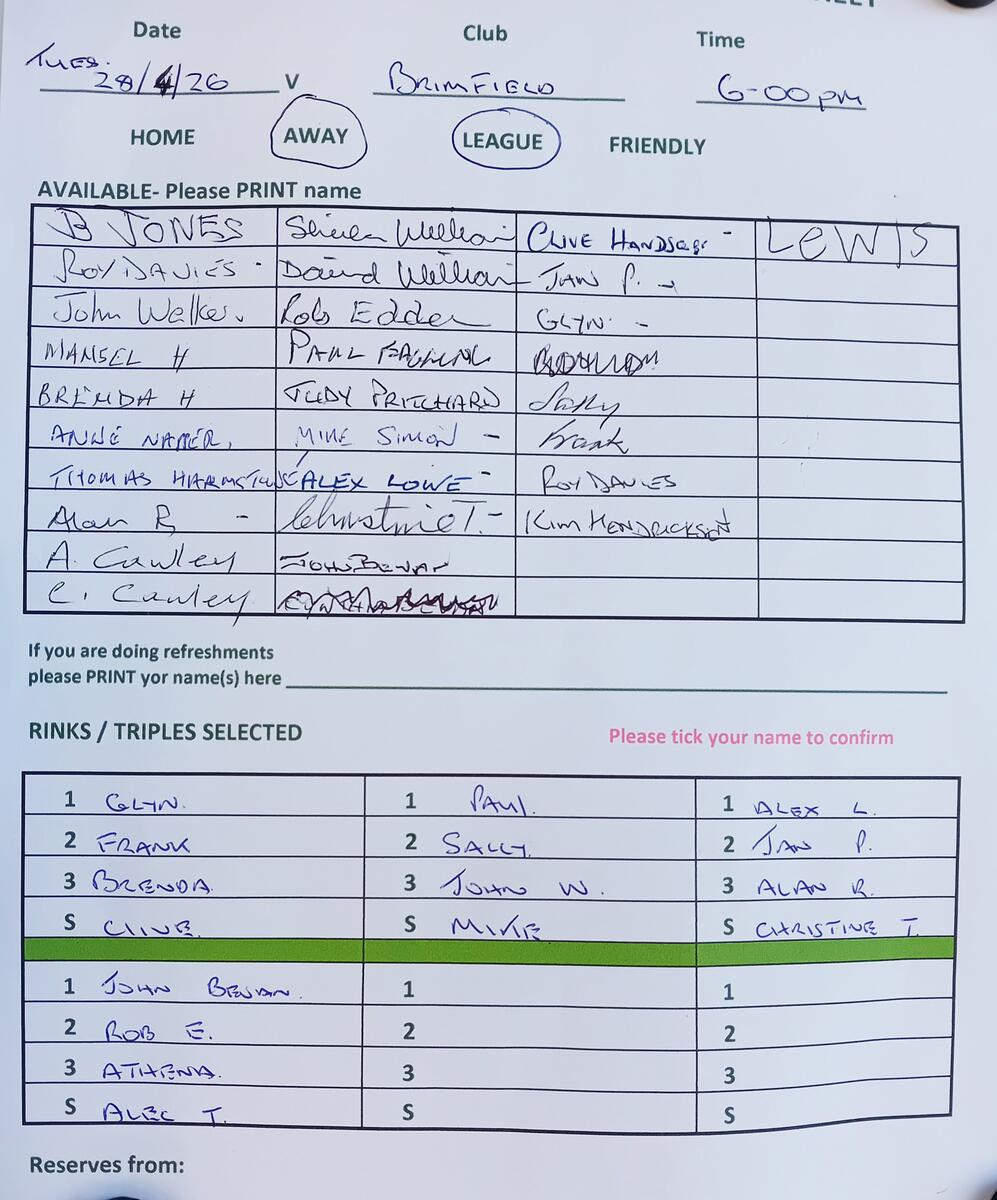 Date Club Time
TUES.
28/4/26 V BRIMFIELD 6-00pm
HOME AWAY LEAGUE FRIENDLY
AVAILABLE- Please PRINT name
B JONES CLIVE LEWIS
ROY DAVIES David JAN P.
John Walker. Rob GLYN
MANSEL H PAUL
BRENDA H JUDY PRITCHARD Sally
ANNE MIKE SIMON Frank
THOMAS ALEX LOWE ROY DAVIES
Alan R Christine T. KIM HENDRICKSEN
A. Cawley JOHN BEVAN
C. Cawley
If you are doing refreshments
please PRINT yor name(s) here
RINKS / TRIPLES SELECTED Please tick your name to confirm
1 GLYN. 1 PAUL. 1 ALEX L.
2 FRANK 2 SALLY. 2 JAN P.
3 BRENDA. 3 JOHN W. 3 ALAN R.
S CLIVE. S MIKE S CHRISTINE T.
1 JOHN BEVAN. 1 1
2 ROB E. 2 2
3 ATHENA. 3 3
S ALEC T. S S
Reserves from: